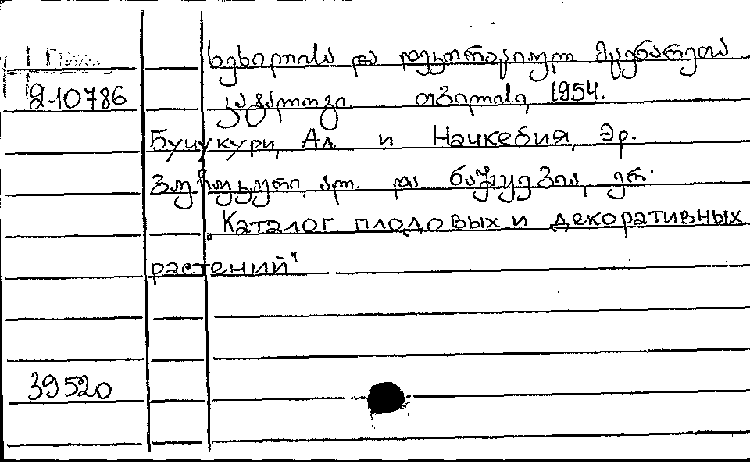 Груз.
2-10786
ხეხილისა და დეკორატიულ მცენარეთა
კატალოგი. თბილისი, 1954.
Бучукури, Ал. и Начкебия, Эр.
ბუჩუკური, ალ. და ნაჭყებია, ერ.
„Каталог плодовых и декоративных
растений"
39520